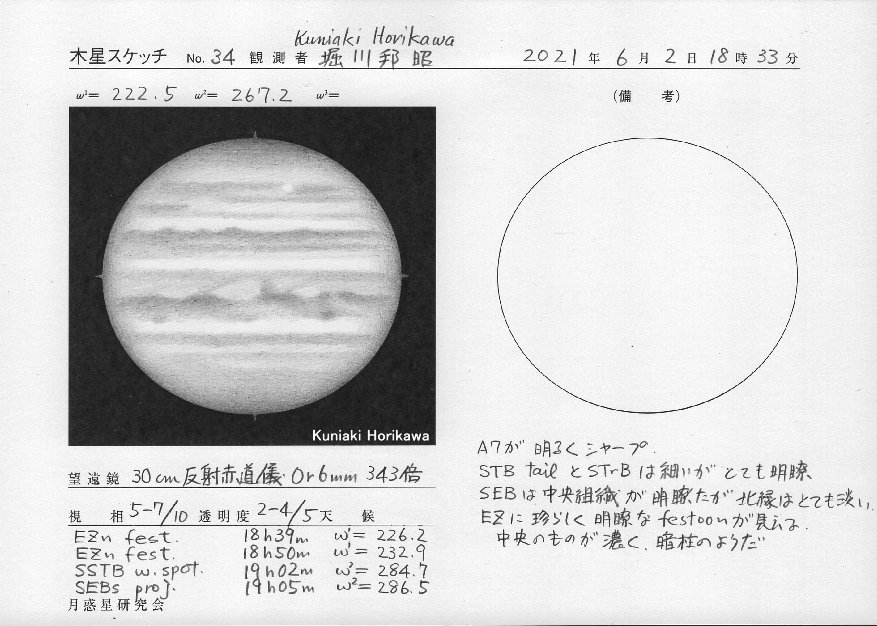 Kuniaki Horikawa
木星スケッチ No. 34 観測者 堀川邦昭 2021年 6月 2日 18時 33分
ω¹= 222.5 ω²= 267.2 ω³=
(備 考)
Kuniaki Horikawa
望遠鏡 30cm反射赤道儀 Or6mm 343倍
視 相 5-7/10 透明度 2-4/5 天 候
EZn fest. 18h39m ω¹= 226.2
EZn fest. 18h50m ω¹= 232.9
SSTB w.spot. 19h02m ω²= 284.7
SEBs proj. 19h05m ω²= 286.5
月惑星研究会
A7が 明るくシャープ.
STB tail とSTrBは細いが とても明瞭.
SEBは中央組織が明瞭だが 北縁はとても淡い.
EZに珍らしく明瞭なfestoonが見える.
中央のものが濃く、暗柱のようだ